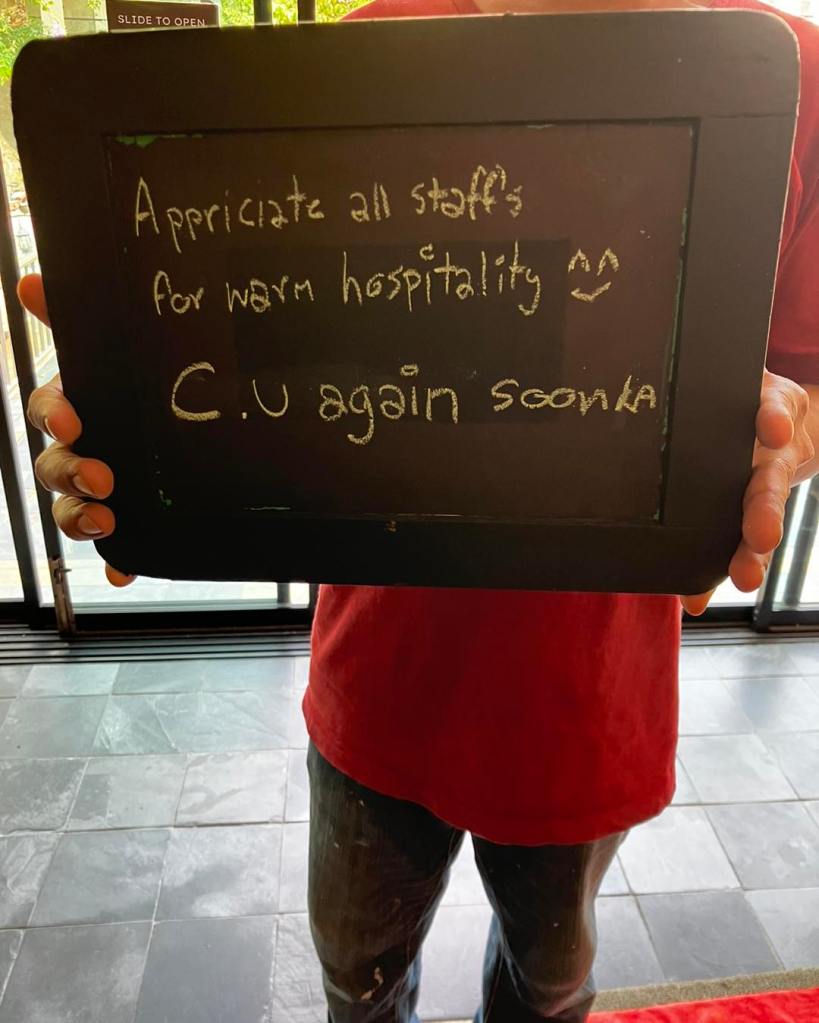 SLIDE TO OPEN
Appriciate all staff's
for warm hospitality
C.U again soonka